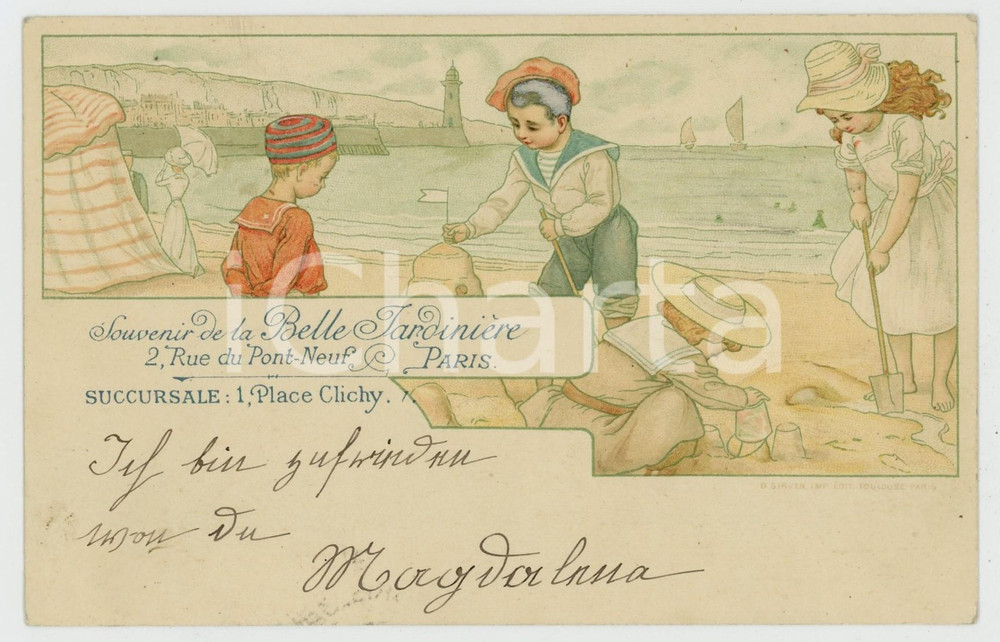 Souvenir de la Belle Jardinière
2, Rue du Pont-Neuf, PARIS.
SUCCURSALE : 1, Place Clichy.
iCharta
B. SIRVEN, IMP. EDIT. TOULOUSE-PARIS
Ich bin zufrieden
von du
Magdalena